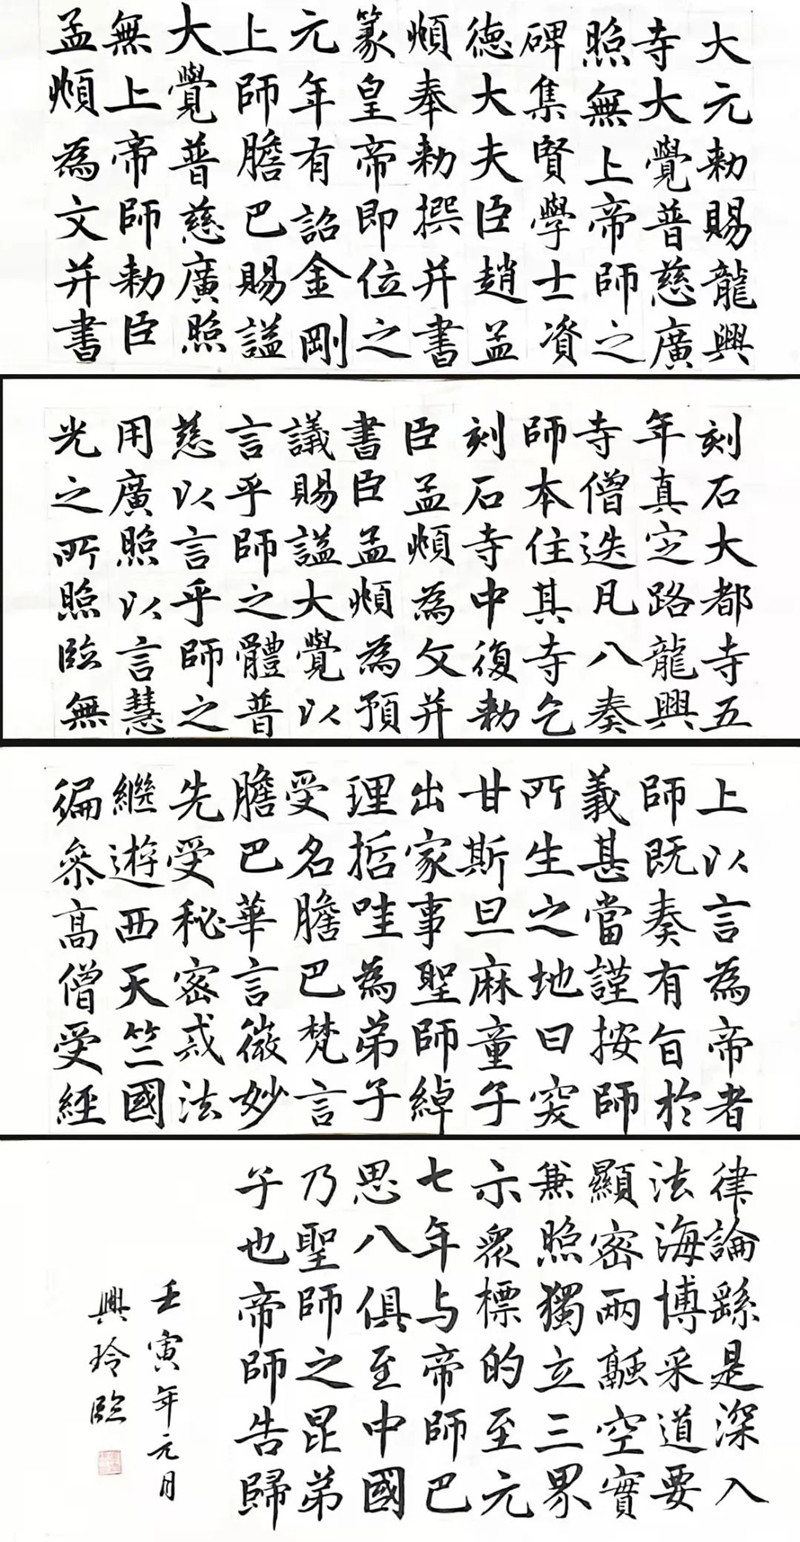 大元勅賜龍興
寺大覺普慈廣
照無上帝師之
碑集賢學士資
德大夫臣趙孟
頫奉勅撰并書
篆皇帝即位之
元年有詔金剛
上師膽巴賜謚
大覺普慈廣照
無上帝師勅臣
孟頫為文并書
刻石大都寺五
年真定路龍興
寺僧迭凡八奏
師本住其寺乞
刻石寺中復勅
臣孟頫為文并
書臣孟頫為預
議賜謚大覺以
言乎師之體普
慈以言乎師之
用廣照以言慧
光之所照臨無
上以言為帝者
師既奏有旨於
義甚當謹按師
所生之地曰突
甘斯旦麻童子
出家事聖師綽
理哲哇為弟子
受名膽巴梵言
膽巴華言微妙
先受秘密戒法
繼遊西天竺國
徧參高僧受經
律論繇是深入
法海博采道要
顯密兩融空實
兼照獨立三界
示眾標的至元
七年与帝師巴
思八俱至中國
乃聖師之昆弟
子也帝師告歸
壬寅年元月
興玲臨